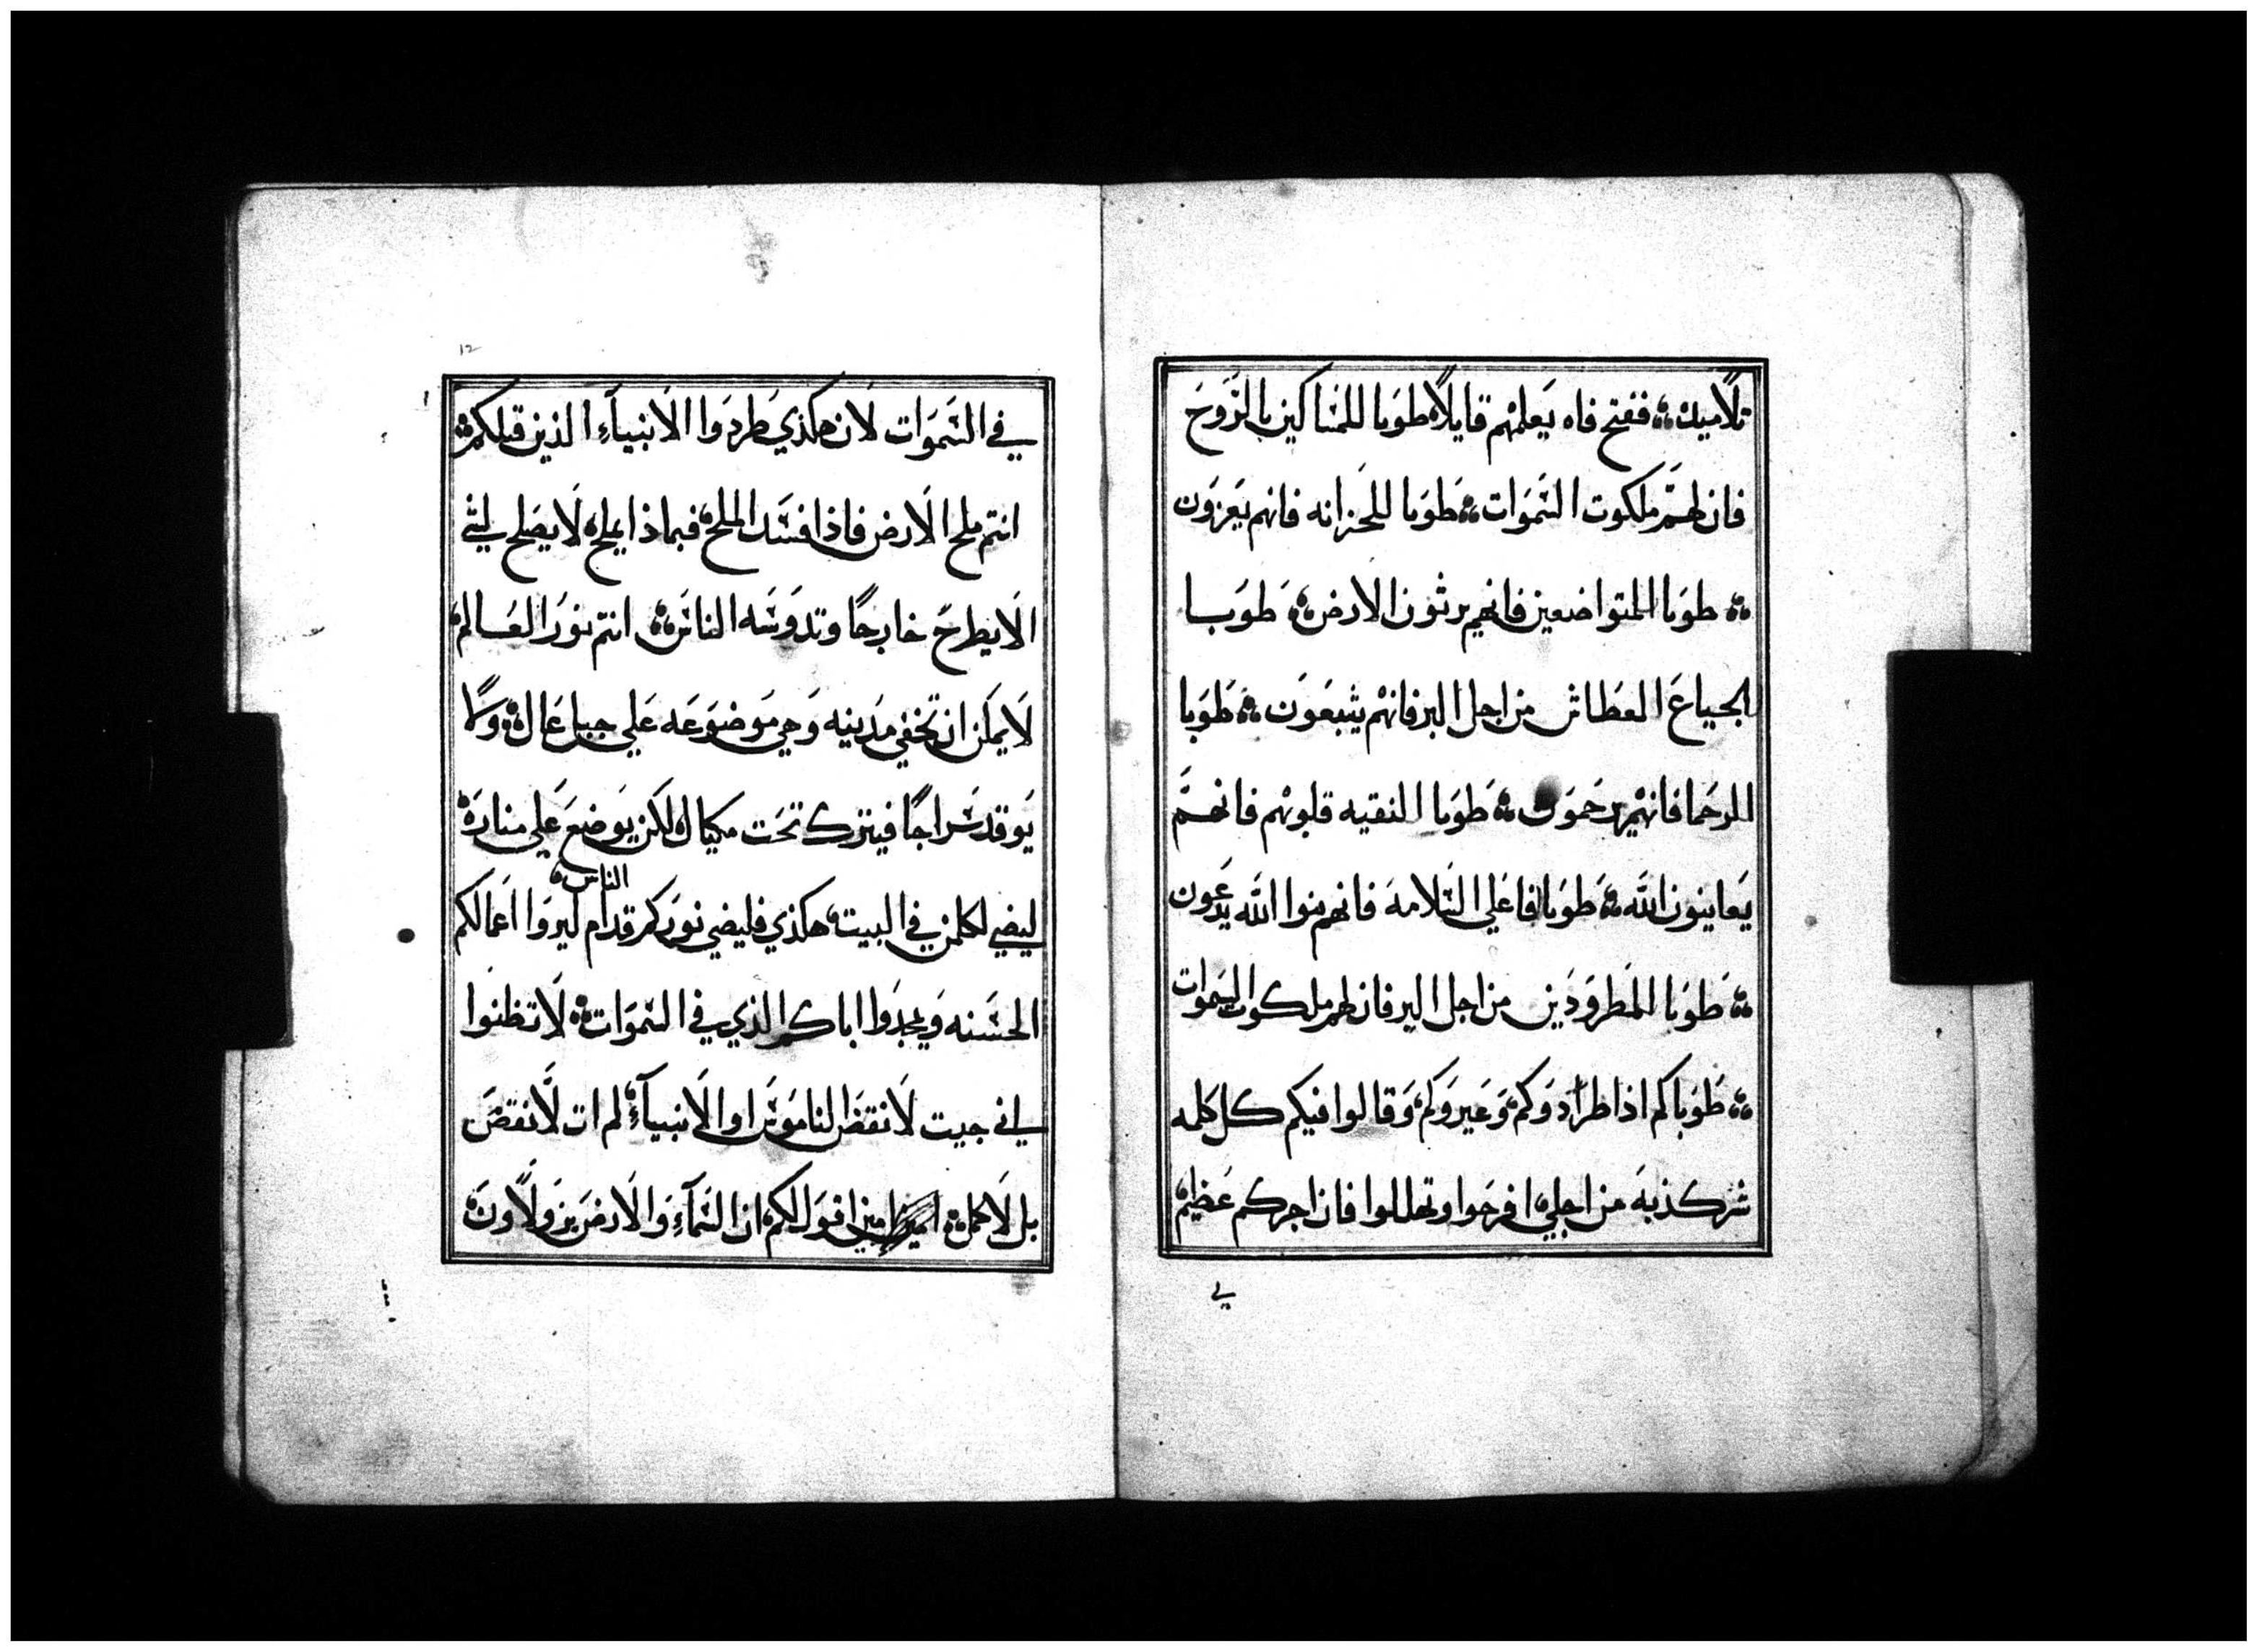 تلاميذه ففتح فاه يعلمهم قايلاً طوبا للمساكين بالروح
فان لهم ملكوت السموات طوبا للحزانه فانهم يعزون
طوبا المتواضعين فانهم يرثون الارض طوبا
الجياع العطاش من اجل البر فانهم يشبعون طوبا
الرحما فانهم يرحمون طوبا النقيه قلوبهم فانهم
يعاينون الله طوبا فاعلي السلامه فانهم بنوا الله يدعون
طوبا المطرودين من اجل البر فان لهم ملكوت السموات
طوباكم اذا طردوكم وعيروكم وقالوا فيكم كل كلمه
شر كذبه من اجلي افرحوا وتهللوا فان اجركم عظيم
في
١٢
في السموات لان هكذي طردوا الانبيآء الذين قبلكم
انتم ملح الارض فاذا فسد الملح فبماذا يملح لا يصلح لشي
الا يطرح خارجًا وتدوسه الناس انتم نور العالم
لا يمكن ان تخفي مدينه وهي موضوعه علي جبل عال ولا
يوقد سراجًا فيترك تحت مكيال لكن يوضع علي مناره
ليضي لكلمن في البيت هكذي فليضي نوركم قدام الناس ليروا اعمالكم
الحسنه ويمجدوا اباكم الذي في السموات لا تظنوا
اني جيت لانقض الناموس او الانبيآء لم ات لانقض
بل لاكمل امين اقول لكم ان السمآء والارض يزولاون